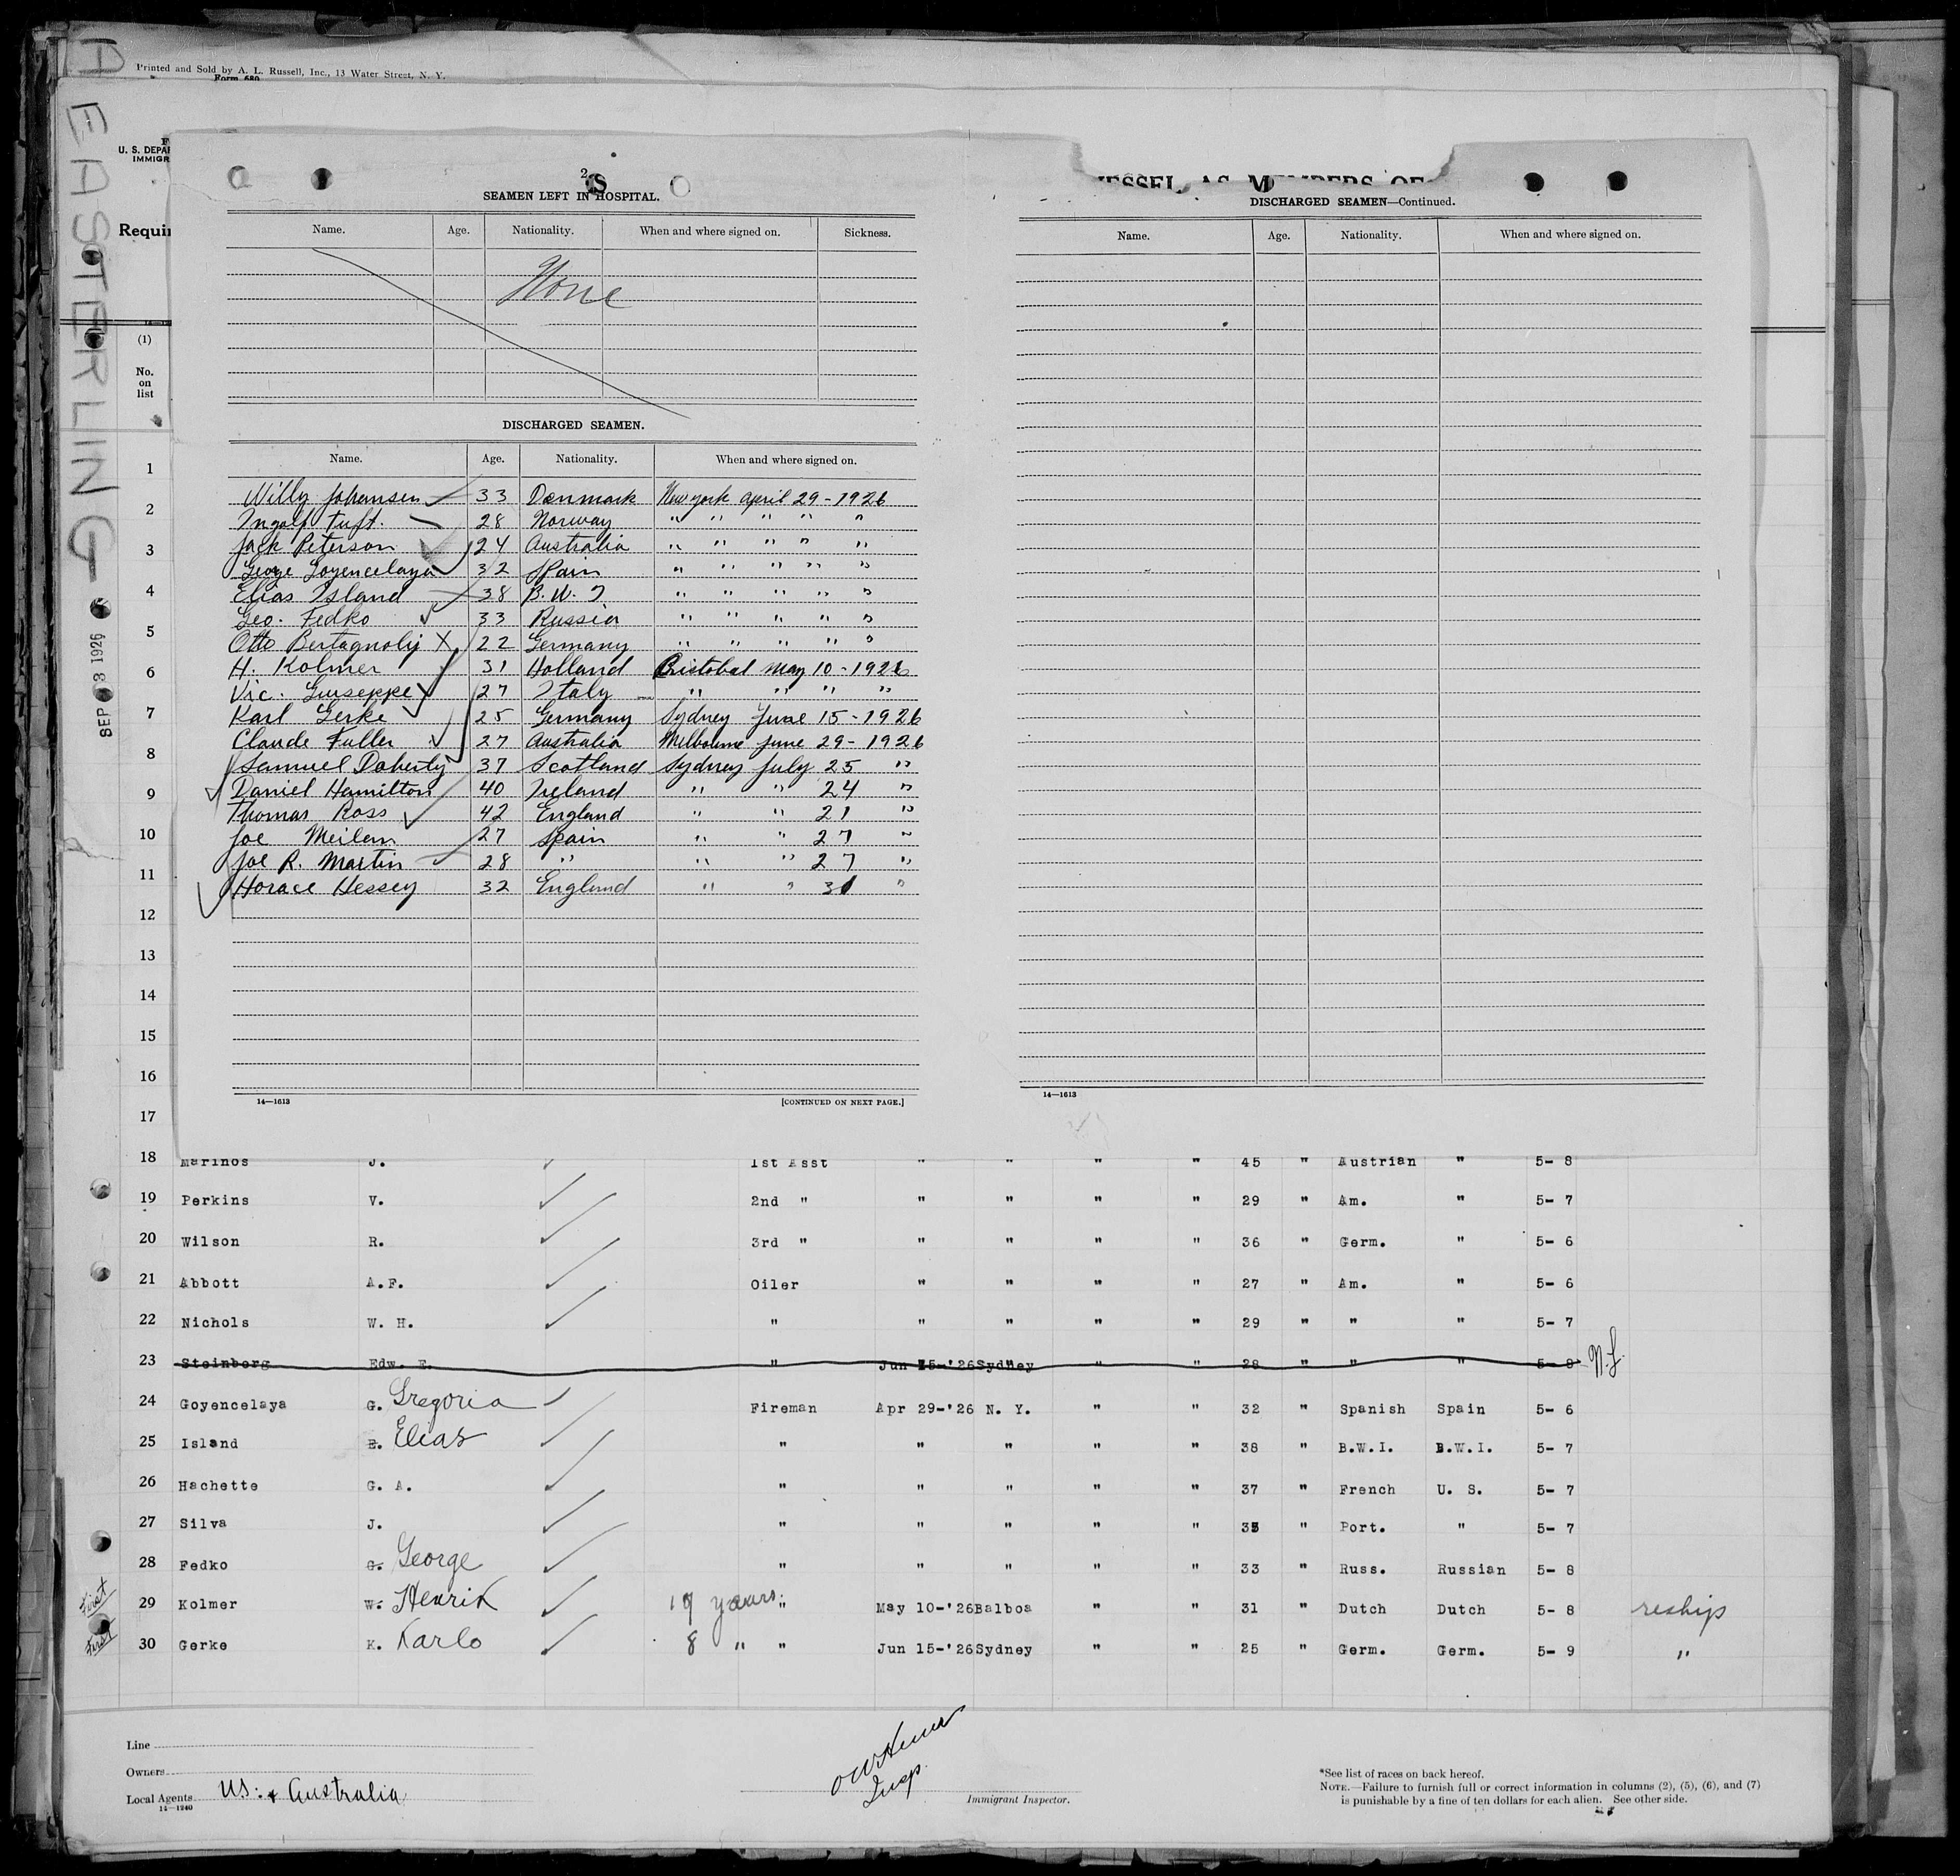 Printed and Sold by A. L. Russell, Inc., 13 Water Street, N. Y.
Form 680
EASTERLING
SEP 3 1926
U. S. DEPA
IMMIGR
Requir
(1)
No.
on
list
2
SEAMEN LEFT IN HOSPITAL.
Name. Age. Nationality. When and where signed on. Sickness.
None
DISCHARGED SEAMEN.
Name. Age. Nationality. When and where signed on.
Willy Johansen 33 Denmark New York April 29-1926
Ingolf Tuft. 28 Norway " " " " "
Jack Peterson 24 Australia " " " " "
George Goyencelaya 32 Spain " " " " "
Elias Island 38 B.W.I " " " " "
Geo. Fedko 33 Russia " " " " "
Otto Bertagnolij X 22 Germany " " " " "
H. Kolmer 31 Holland Cristobal May 10-1926
Vic. Guiseppe 27 Italy " " " "
Karl Gerke 25 Germany Sydney June 15-1926
Claude Fuller 27 Australia Melbourne June 29-1926
Samuel Doherty 37 Scotland Sydney July 25 "
Daniel Hamilton 40 Ireland " " 24 "
Thomas Ross 42 England " " 21 "
Joe Meilan 27 Spain " " 27 "
Joe R. Martin 28 " " " 27 "
Horace Hessey 32 England " " 31 "
14—1613 [CONTINUED ON NEXT PAGE.]
VESSEL AS MEMBERS OF
DISCHARGED SEAMEN—Continued.
Name. Age. Nationality. When and where signed on.
14—1613
1
2
3
4
5
6
7
8
9
10
11
12
13
14
15
16
17
18 Marinos J. 1st Asst " " " " 45 " Austrian " 5- 8
19 Perkins V. 2nd " " " " " 29 " Am. " 5- 7
20 Wilson R. 3rd " " " " " 36 " Germ. " 5- 6
21 Abbott A.F. Oiler " " " " 27 " Am. " 5- 6
22 Nichols W. H. " " " " " 29 " " " 5- 7
23 Steinberg Edw. E. " Jun 15-'26 Sydney " " 28 " " " 5- 8 N.L.
24 Goyencelaya G. Gregoria Fireman Apr 29-'26 N. Y. " " 32 " Spanish Spain 5- 6
25 Island E. Elias " " " " " 38 " B.W.I. B.W.I. 5- 7
26 Hachette G. A. " " " " " 37 " French U. S. 5- 7
27 Silva J. " " " " " 35 " Port. " 5- 7
28 Fedko G. George " " " " " 33 " Russ. Russian 5- 8
First 29 Kolmer W. Henrik 19 years " May 10-'26 Balboa " " 31 " Dutch Dutch 5- 8 reships
First 30 Gerke K. Karlo 8 " " Jun 15-'26 Sydney " " 25 " Germ. Germ. 5- 9 "
Line
Owners
Local Agents U.S. & Australia
14—1240
Insp.
Immigrant Inspector.
*See list of races on back hereof.
NOTE.—Failure to furnish full or correct information in columns (2), (5), (6), and (7)
is punishable by a fine of ten dollars for each alien. See other side.